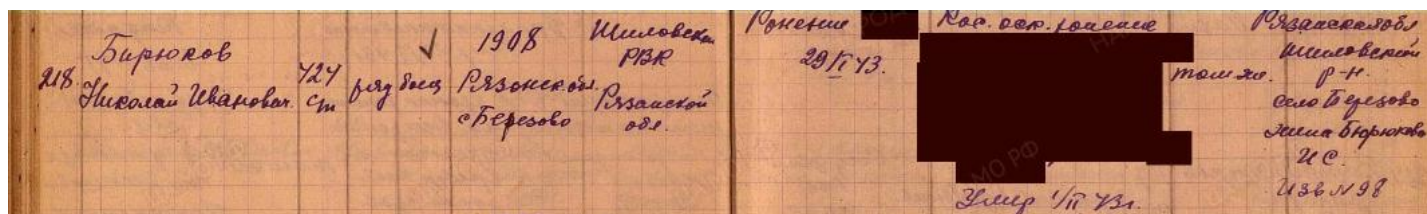 218.
Бирюков
Николай Иванович.
424
сп
ряд боец
1908
Рязанск. обл.
с Березово
Шиловским
РВК
Рязанской
обл.
Ранение
29/I 43.
Кос. оск. ранение
Умер 1/II 43г.
там же.
Рязанская обл
Шиловский
р-н.
село Березово
жена Бирюкова
И С.
Изв N 98